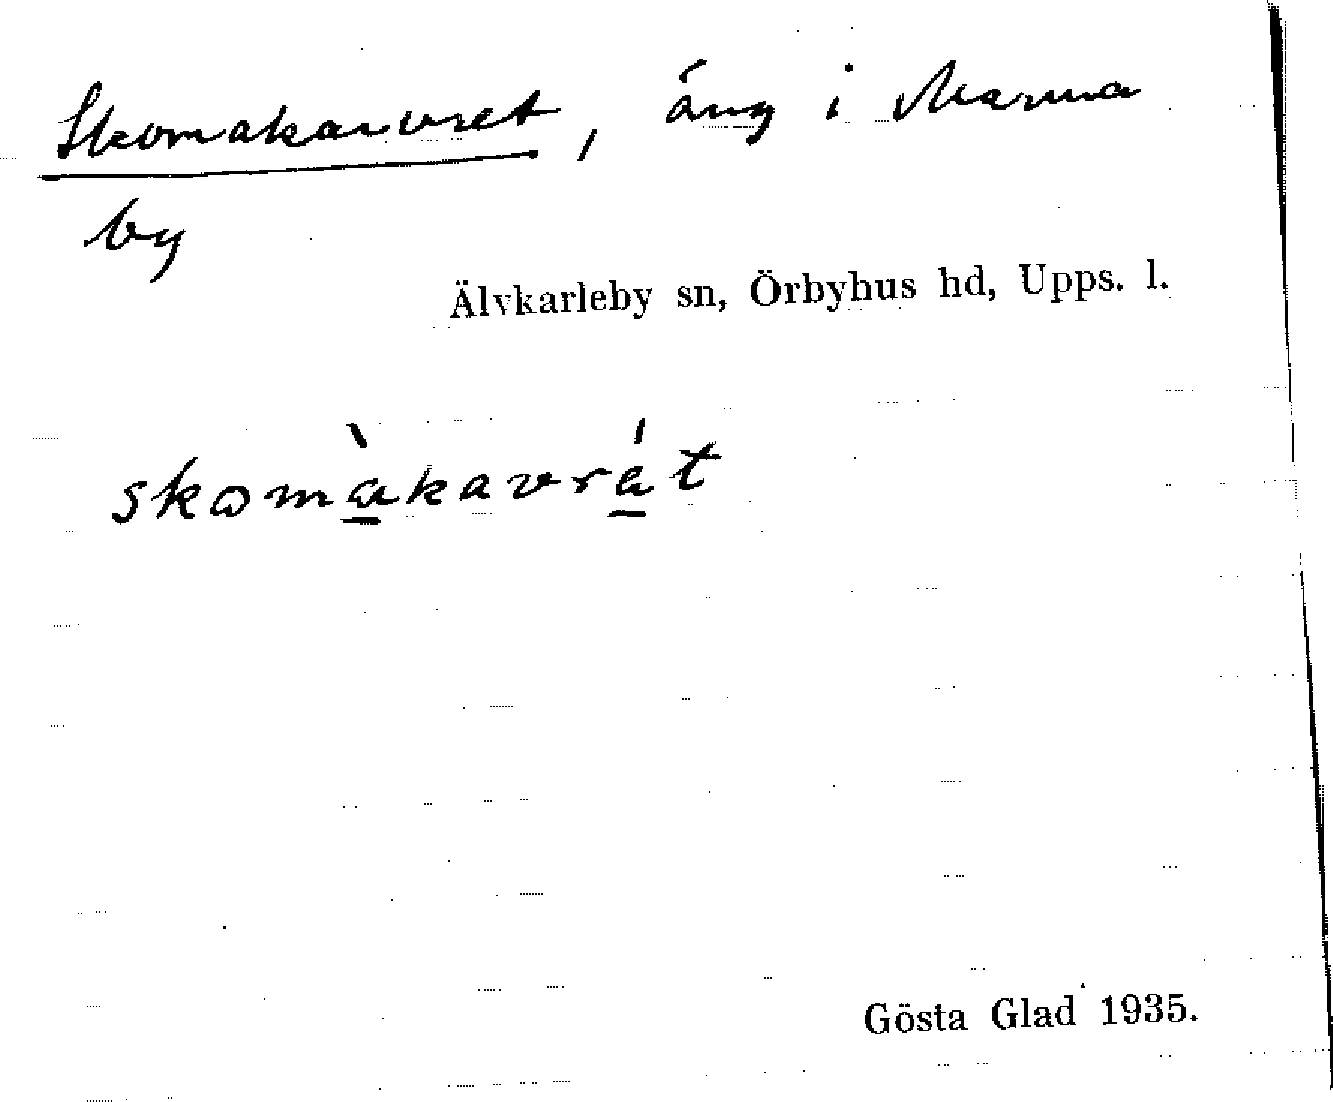 Skomakarvret, äng i Marma
by
Älvkarleby sn, Örbyhus hd, Upps. l.
skomà̱kavrа̱́t
Gösta Glad 1935.